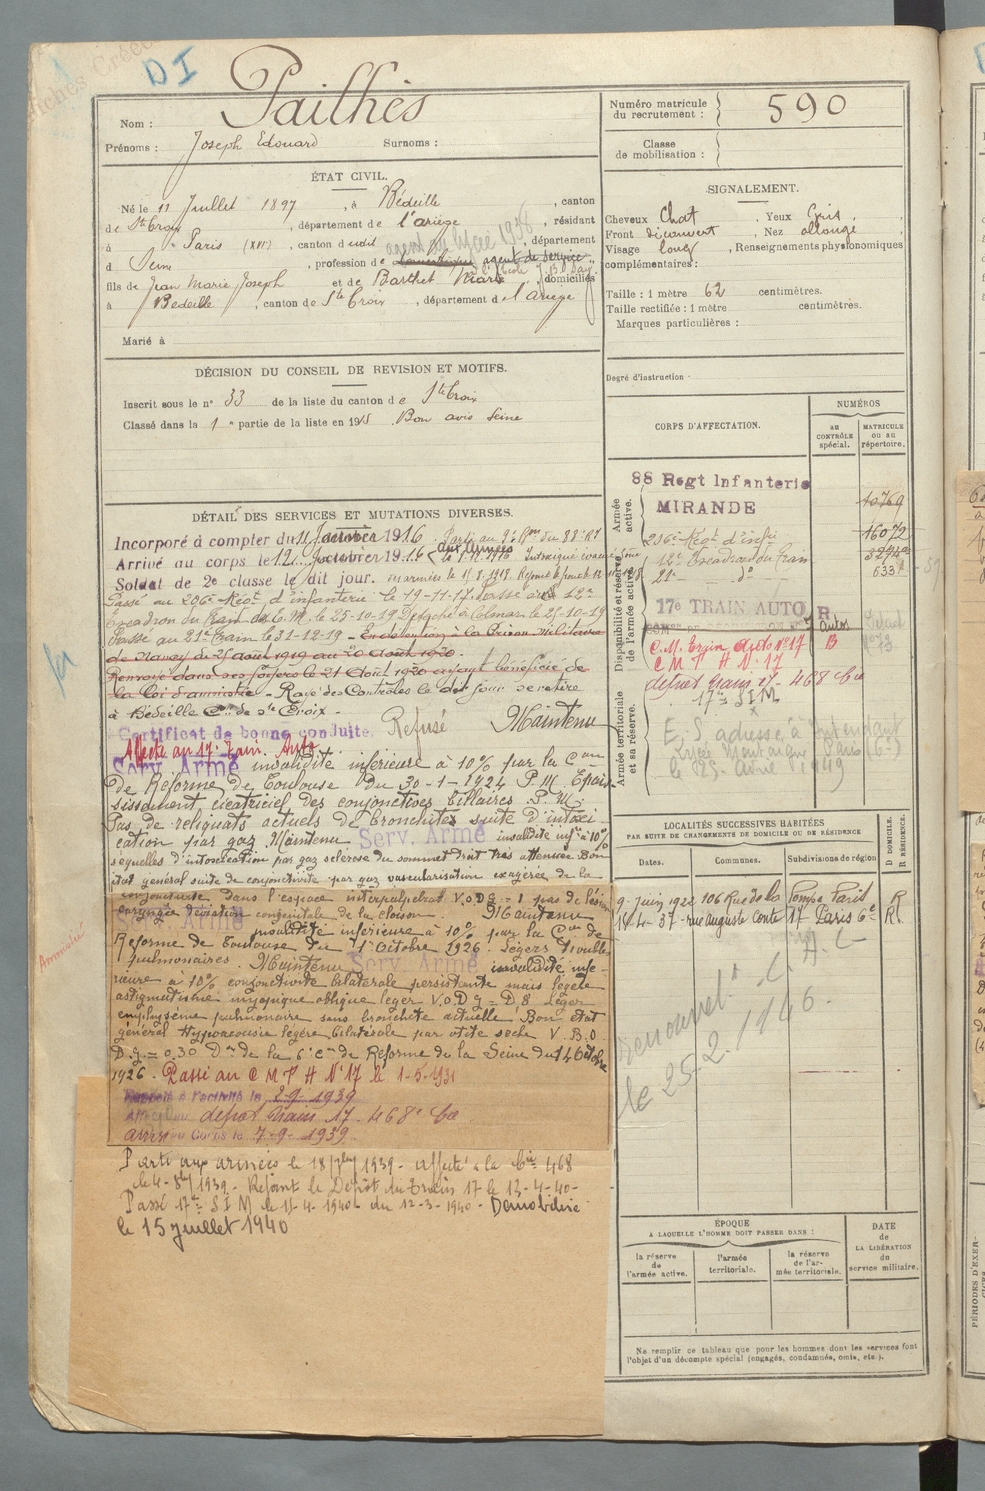 DI
Nom : Pailhès
Prénoms : Joseph Edouard Surnoms :
ÉTAT CIVIL.
Né le 11 Juillet 1897, à Bédeille, canton
de Ste Croix, département de l'ariège, résidant
à Paris (XVIe), canton dudit, département
d Seine, profession de domestique agent de service
agent du lycée 1936
fils de Jean Marie Joseph et de Barthet Marie, domiciliés
à Bedeille, canton de Ste Croix, département de l'ariege
Marié à
DÉCISION DU CONSEIL DE REVISION ET MOTIFS.
Inscrit sous le n° 33 de la liste du canton de Ste Croix
Classé dans la 1e partie de la liste en 1915 Bon avis Seine
DÉTAIL DES SERVICES ET MUTATIONS DIVERSES.
Incorporé à compter du 11 1916. Parti au
Arrivé au corps le 12 1916 aux armées
Soldat de 2e classe le dit jour.
Passé au 206e Régt d'infanterie le 19-11-17. Passé au 12e
Escadron du Train des E.M. le 25-10-19 Détaché à Colmar le 25-10-19
Passé au 21e Train le 31-12-19 - En détention à la Prison Militaire
de Nancy du 25 août 1919 au 20 Août 1920.
Renvoyé dans ses foyers le 21 Août 1920 ayant bénéficié de
la loi d'amnistie - Rayé des Contrôles le dit jour se retire
à Bédeille Con de Ste Croix -
Certificat de bonne conduite. Refusé Maintenu
Affecté au 17e Train Auto
Serv. Armé invalidité inférieure à 10% par la Con
de Réforme de Toulouse du 30-1-1924 P.M. Epais-
sissement cicatriciel des conjonctives P.M.
Pas de reliquats actuels de bronchites suite d'intoxi-
cation par gaz Maintenu Serv. Armé invalidité infre à 10%
séquelles d'intoxication par gaz sclérose du sommet droit très atténuée Bon
état général suite de conjonctivite par gaz vascularisation exagérée de la
conjonctive dans l'espace interpalpébral V.O.D.G. = 1 pas de lésion
laryngée déviation congénitale de la cloison. Maintenu
Serv. Armé invalidité inférieure à 10% par la Con de
Réforme de Toulouse du 1er Octobre 1926. Légers troubles
pulmonaires. Maintenu Serv. Armé invalidité infé-
rieure à 10% conjonctivite bilatérale persistante mais légère
astigmatisme myopique oblique léger V.O.D.G = D,8 Léger
emphysème pulmonaire sans bronchite actuelle Bon état
général Hypoacousie légère bilatérale par otite sèche V.B.O.
D.g. = 0.30 Don de la 6e Con de Réforme de la Seine du 14 Octobre
1926. Passé au C M T H N° 17 le 1-5-1931
Rappelé à l'activité le 2-9-1939
Affecté au depot train 17. 468e Cie
arrivé au Corps le 7-9-1939
Parti aux armées le 18/7bre/1939 - affecté à la Cie 468
le 4-8bre 1939 - Rejoint le Dépôt du Train 17 le 13-4-40-
Passé 17e S I M le 15-4-1940 du 12-3-1940 - Démobilisé
le 15 juillet 1940
Amnistié
Numéro matricule du recrutement : 590
Classe de mobilisation :
SIGNALEMENT.
Cheveux Chat, Yeux Gris,
Front découvert, Nez allongé
Visage long, Renseignements physionomiques
complémentaires :
Taille : 1 mètre 62 centimètres.
Taille rectifiée : 1 mètre centimètres.
Marques particulières :
Degré d'instruction
CORPS D'AFFECTATION.
NUMÉROS
AU CONTRÔLE spécial.
MATRICULE OU AU répertoire.
Armée active.
Disponibilité et réserve de l'armée active.
Armée territoriale et sa réserve.
88 Regt Infanterie
MIRANDE
10769
206e Régt d'infie 16072
12e Escadron du Train
21e do
17e TRAIN AUTO R.
Autos
C.M. Train Auto N° 17 B
C M T H N° 17
depot train 17 - 468 Cie
17e SIM
E.S. adresse à Intendant
Lycée Montaigne Paris (6e)
le 25 1949
LOCALITÉS SUCCESSIVES HABITÉES
PAR SUITE DE CHANGEMENTS DE DOMICILE OU DE RÉSIDENCE
Dates. Communes. Subdivisions de région
D DOMICILE. R RÉSIDENCE.
9-juin 1922 106 Rue de la Pompe Paris R
14-4-37 - rue auguste Conte 17 Paris 6e R
renouvelt C. A.
le 25.2.1946.
ÉPOQUE
A LAQUELLE L'HOMME DOIT PASSER DANS :
la réserve de l'armée active.
l'armée territoriale.
la réserve de l'armée territoriale.
DATE de LA LIBÉRATION du service militaire.
Ne remplir ce tableau que pour les hommes dont les services font
l'objet d'un décompte spécial (engagés, condamnés, omis, etc.).
PÉRIODES D'EXER-